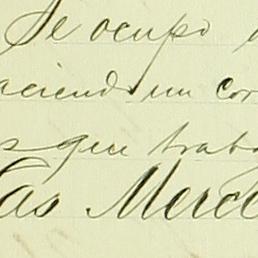 Se ocupo
aciendo un cor
s que trab
las Merce